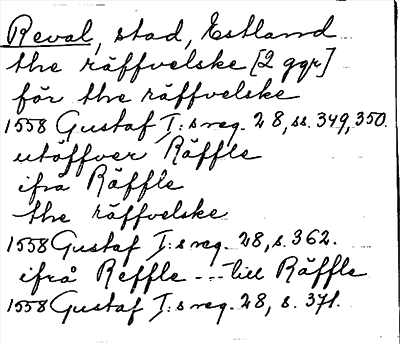 Reval, stad, Estland
the räffvelske [2 ggr]
för the räffvelske
1558 Gustaf I:s reg. 28, ss. 349, 350.
utöffver Räffle
ifrå Räffle
the räffvelske
1558 Gustaf I:s reg. 28, s. 362.
ifrå Reffle --- till Räffle
1558 Gustaf I:s reg. 28, s. 371.